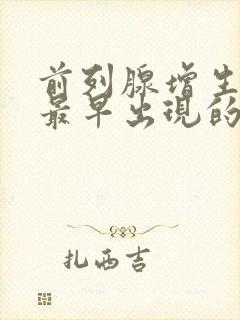 前列腺增生
最早出现的
扎西吉